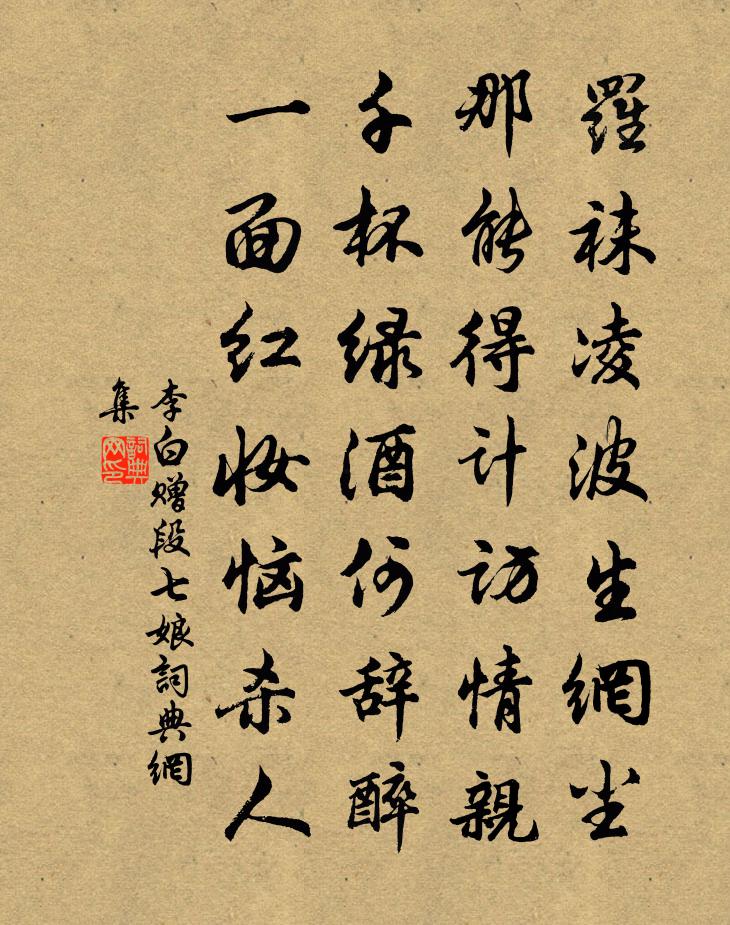 羅袜凌波生網尘
那能得计访情親
千杯绿酒何辞醉
一面红妆恼杀人
李白赠段七娘詞典網
集
詞典网印